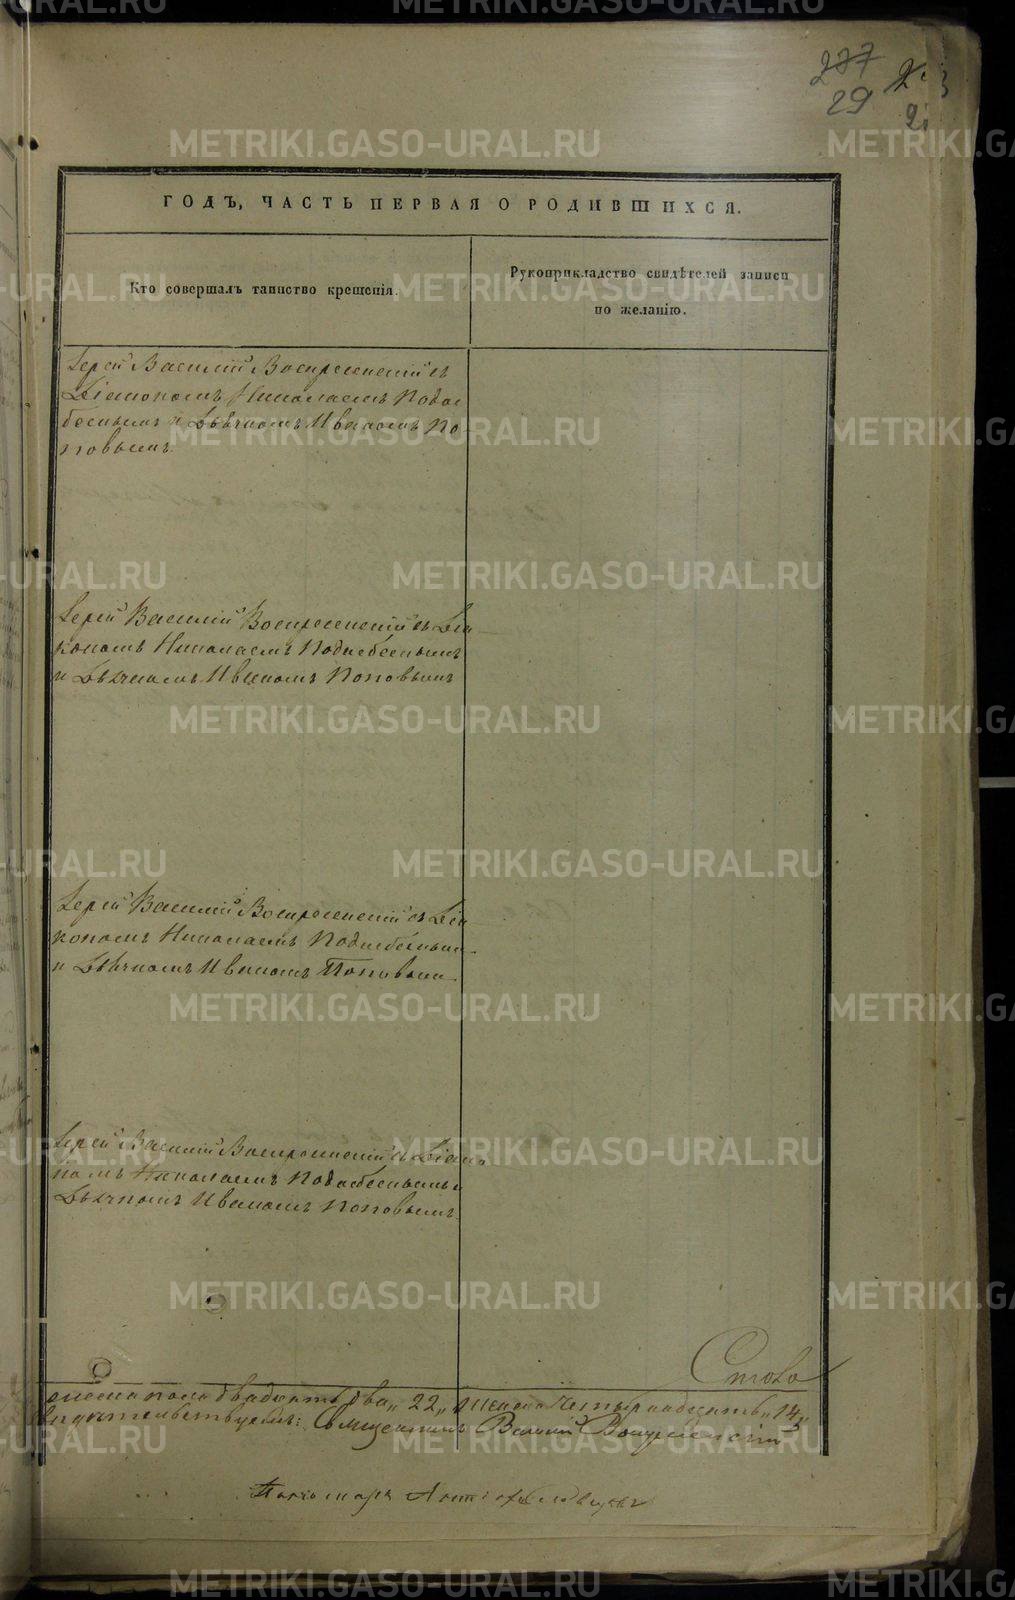 237
29
ГОДЪ, ЧАСТЬ ПЕРВАЯ О РОДИВШИХСЯ.
Кто совершалъ таинство крещенія.
Рукоприкладство свидѣтелей записи
по желанію.
Іерей Василій Воскресенскій съ
Діакономъ Николаемъ Подне
беснымъ и Дьячкомъ Иваномъ По-
повымъ.
Іерей Василій Воскресенскій съ Діа
кономъ Николаемъ Поднебеснымъ
и Дьячкомъ Иваномъ Поповымъ
Іерей Василій Воскресенскій съ Діа
кономъ Николаемъ Поднебеснымъ
и Дьячкомъ Иваномъ Поповым
Іерей Василій Воскресенскій съ Діако
номъ Николаемъ Поднебеснымъ и
Дьячкомъ Иваномъ Поповымъ
пола двадцать два „22„ женска четырнадцать „14„
свидѣтельствуемъ: Священникъ Василій Воскресенскій
Пономарь
METRIKI.GASO-URAL.RU